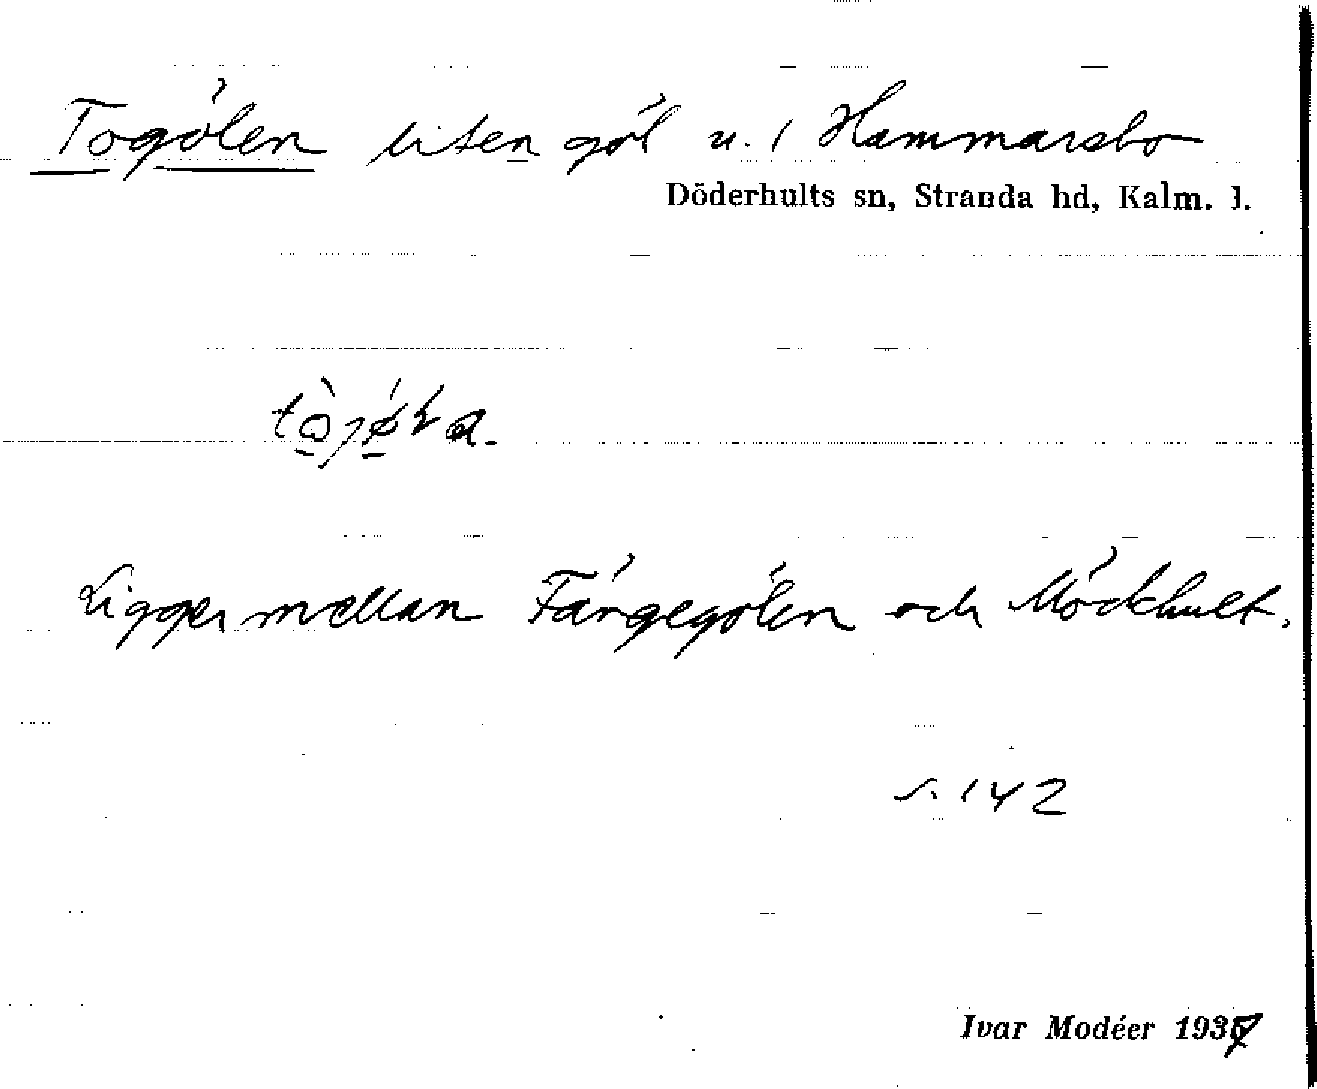 Togölen liten göl u. / Hammarsbo
Döderhults sn, Stranda hd, Kalm. l.
Ligger mellan Färgegölen och Möckhult.
s. 142
Ivar Modéer 1937